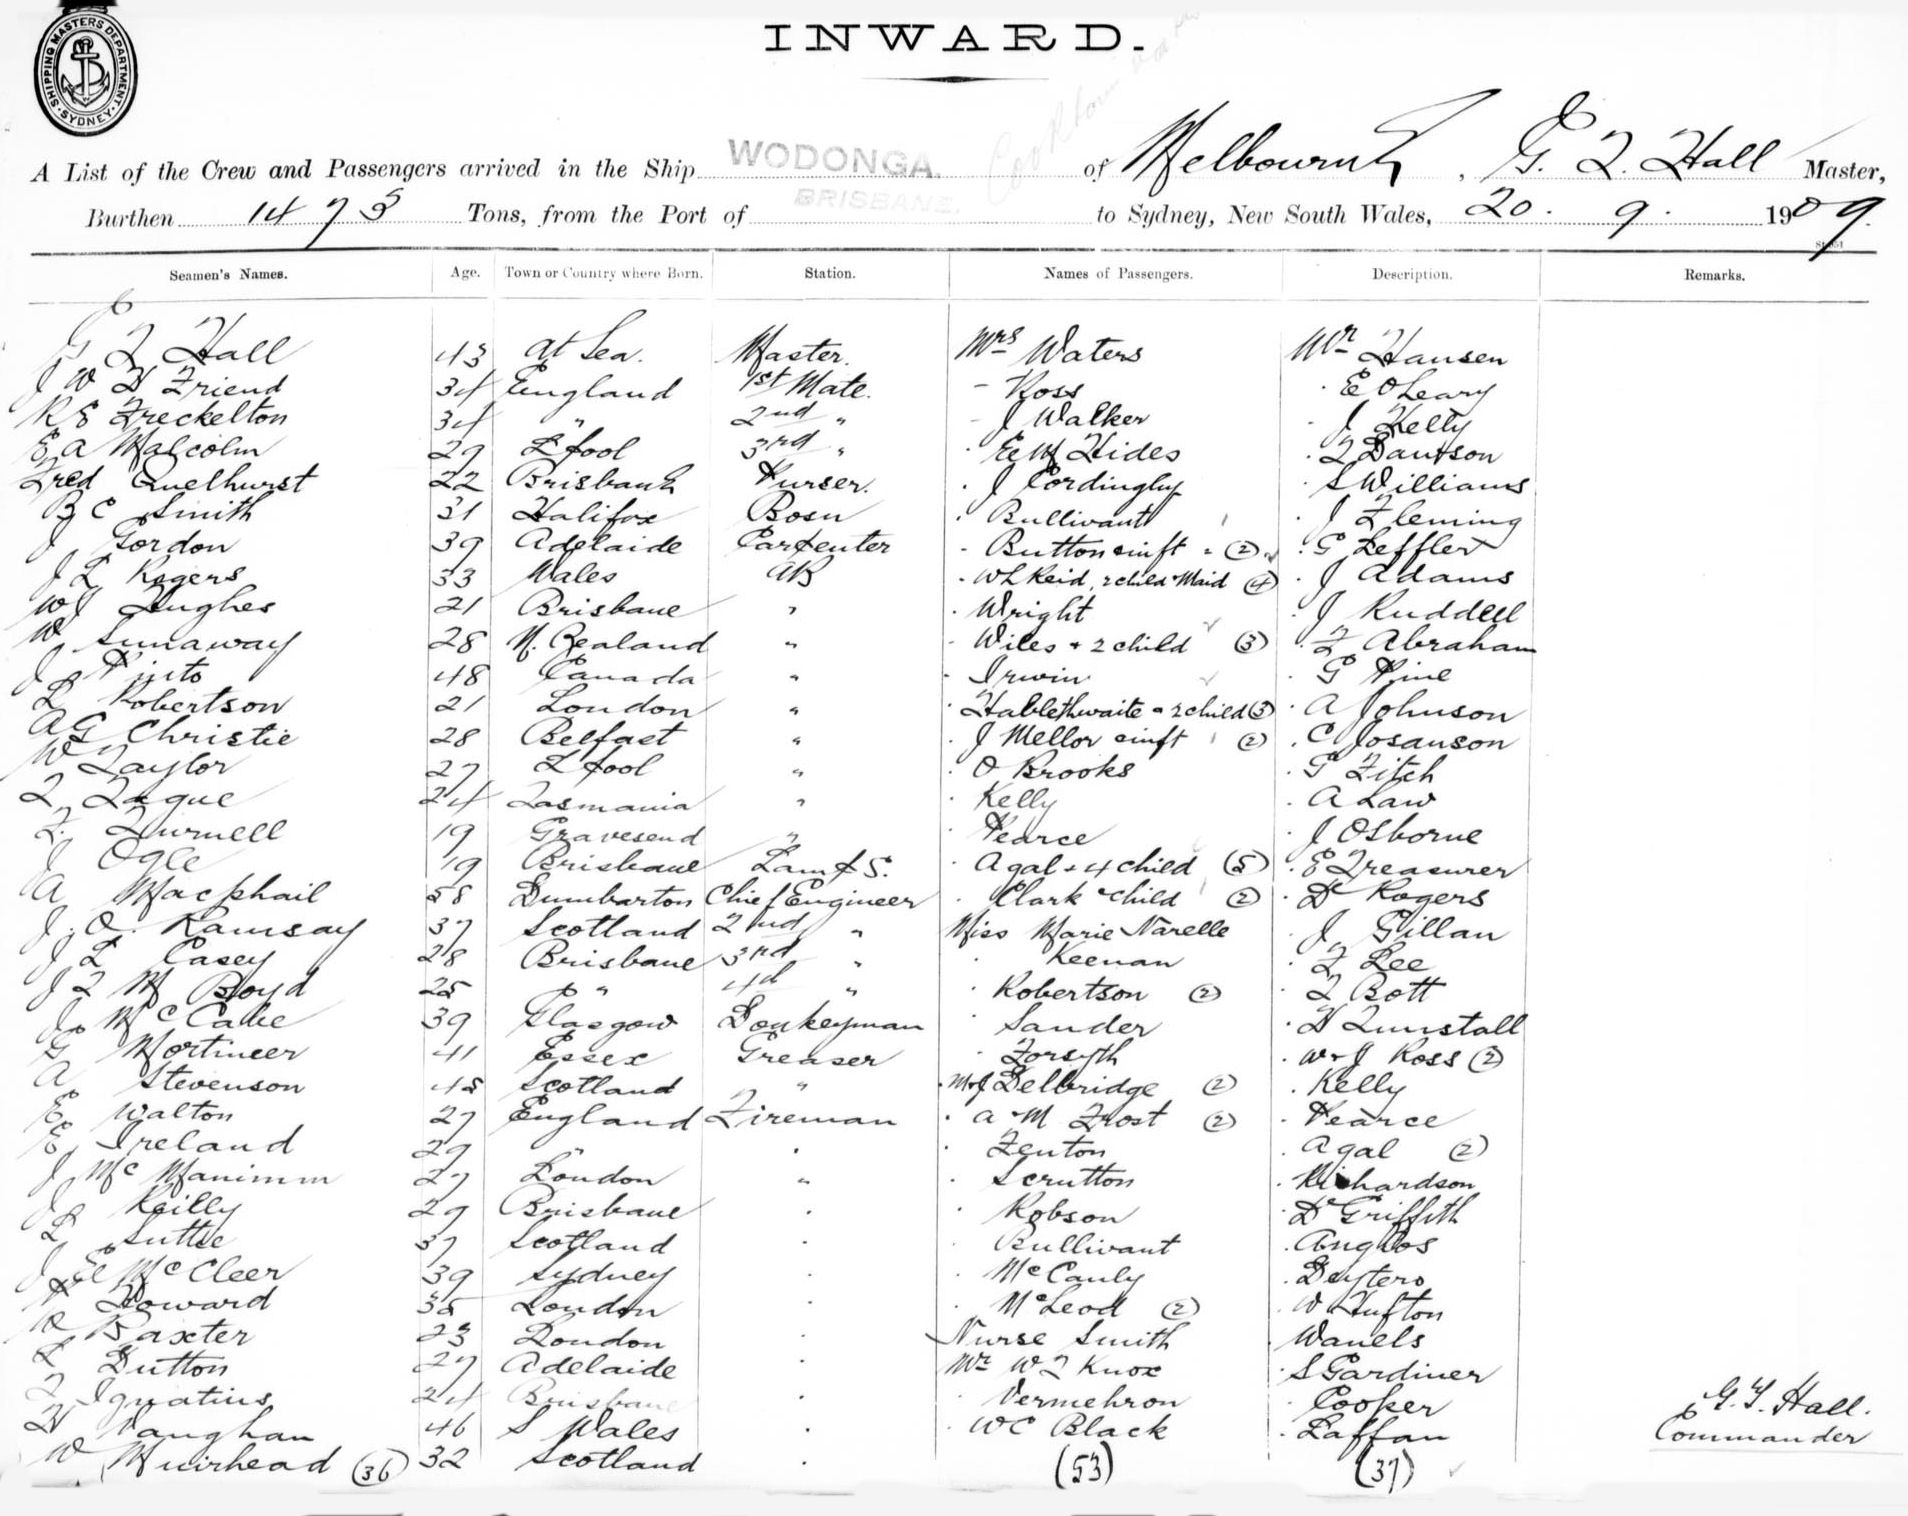 INWARD.
SHIPPING MASTERS DEPARTMENT SYDNEY
A List of the Crew and Passengers arrived in the Ship WODONGA. of Melbourne, G. T. Hall Master,
Burthen 1473 Tons, from the Port of BRISBANE. to Sydney, New South Wales, 20. 9. 1909.
Seamen's Names. Age. Town or Country where Born. Station. Names of Passengers. Description. Remarks.
G T Hall 43 At Sea. Master. Mrs Waters Mr Hansen
J W H Friend 34 England 1st Mate. - Ross E O'Leary
R E Freckelton 34 " 2nd " - J Walker J Kelly
E A Malcolm 29 L'pool 3rd " E M Hides T Davison
Fred Quelhurst 22 Brisbane Purser. J Cordingley S Williams
B C Smith 31 Halifax Bosn Bullivant J Fleming
J Gordon 39 Adelaide Carpenter Button & inft (2) G Leffler
J L Rogers 33 Wales AB W L Reid, 2 child & Maid (4) J Adams
W J Hughes 21 Brisbane " Wright J Ruddell
W 28 N. Zealand " Wiles + 2 child (3) F Abraham
J Pinto 48 Canada " Irwin G Pine
L Robertson 21 London " Hablethwaite & 2 child (3) A Johnson
A G Christie 28 Belfast " J Mellor & inft (2) C Josanson
W Taylor 27 L'pool " O Brooks G Fitch
T Tague 24 Tasmania " Kelly A Law
F. Furnell 19 Gravesend " Pearce J Osborne
J Ogle 19 Brisbane Lampt S. Agal + 4 child (5) E Treasurer
A Macphail 58 Dumbarton Chief Engineer Clark & child (2) Dr Rogers
J. A. Ramsay 37 Scotland 2nd " Miss Marie Narelle J Gillan
J L Casey 28 Brisbane 3rd " Keenan F Lee
J T M Boyd 25 " 4th " Robertson (2) T Bott
J McCabe 39 Glasgow Donkeyman Sander H Tunstall
G Mortimer 41 Essex Greaser Forsyth W & J Ross (2)
A Stevenson 45 Scotland " M & J Delbridge (2) Kelly
E Walton 27 England Fireman A & M Frost (2) Pearce
E Ireland 29 " " Fenton Agal (2)
J McManimm 27 London " Scrutton Richardson
J Reilly 29 Brisbane " Robson Dr Griffith
L Suttie 37 Scotland " Bullivant Anglos
J McCleer 39 Sydney " McCauly Deytero
Howard 35 London " McLeod (2) W Hufton
R Baxter 23 London " Nurse Smith Wanels
L Dutton 27 Adelaide " Mr W T Knox S Gardiner
F Ignatius 24 Brisbane " Vermehron Cooper
H Vaughan 46 S Wales " W C Black Laffan
W Muirhead (36) 32 Scotland " (53) (37)
G. T. Hall.
Commander